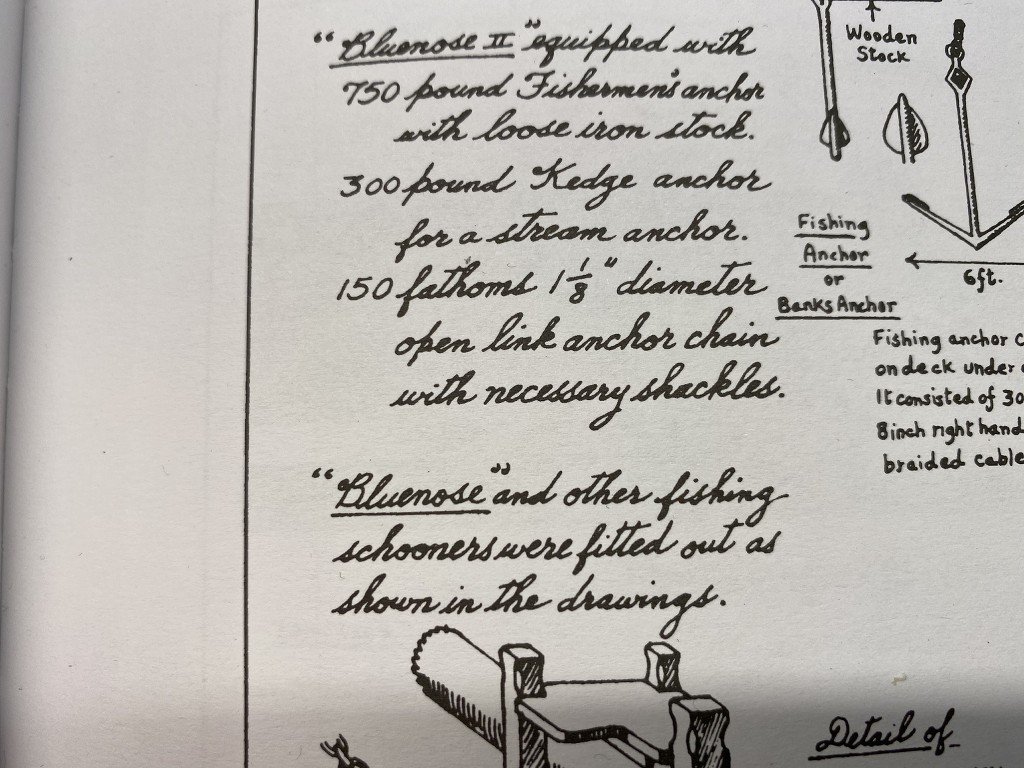 "Bluenose II" equipped with
750 pound Fishermen's anchor
with loose iron stock.
300 pound Kedge anchor
for a stream anchor.
150 fathoms 1 1/8" diameter
open link anchor chain
with necessary shackles.
"Bluenose" and other fishing
schooners were fitted out as
shown in the drawings.
Wooden
Stock
Fishing
Anchor
or
Banks Anchor
6ft.
Fishing anchor
on deck under
It consisted of
8inch right hand
braided cable
Detail of